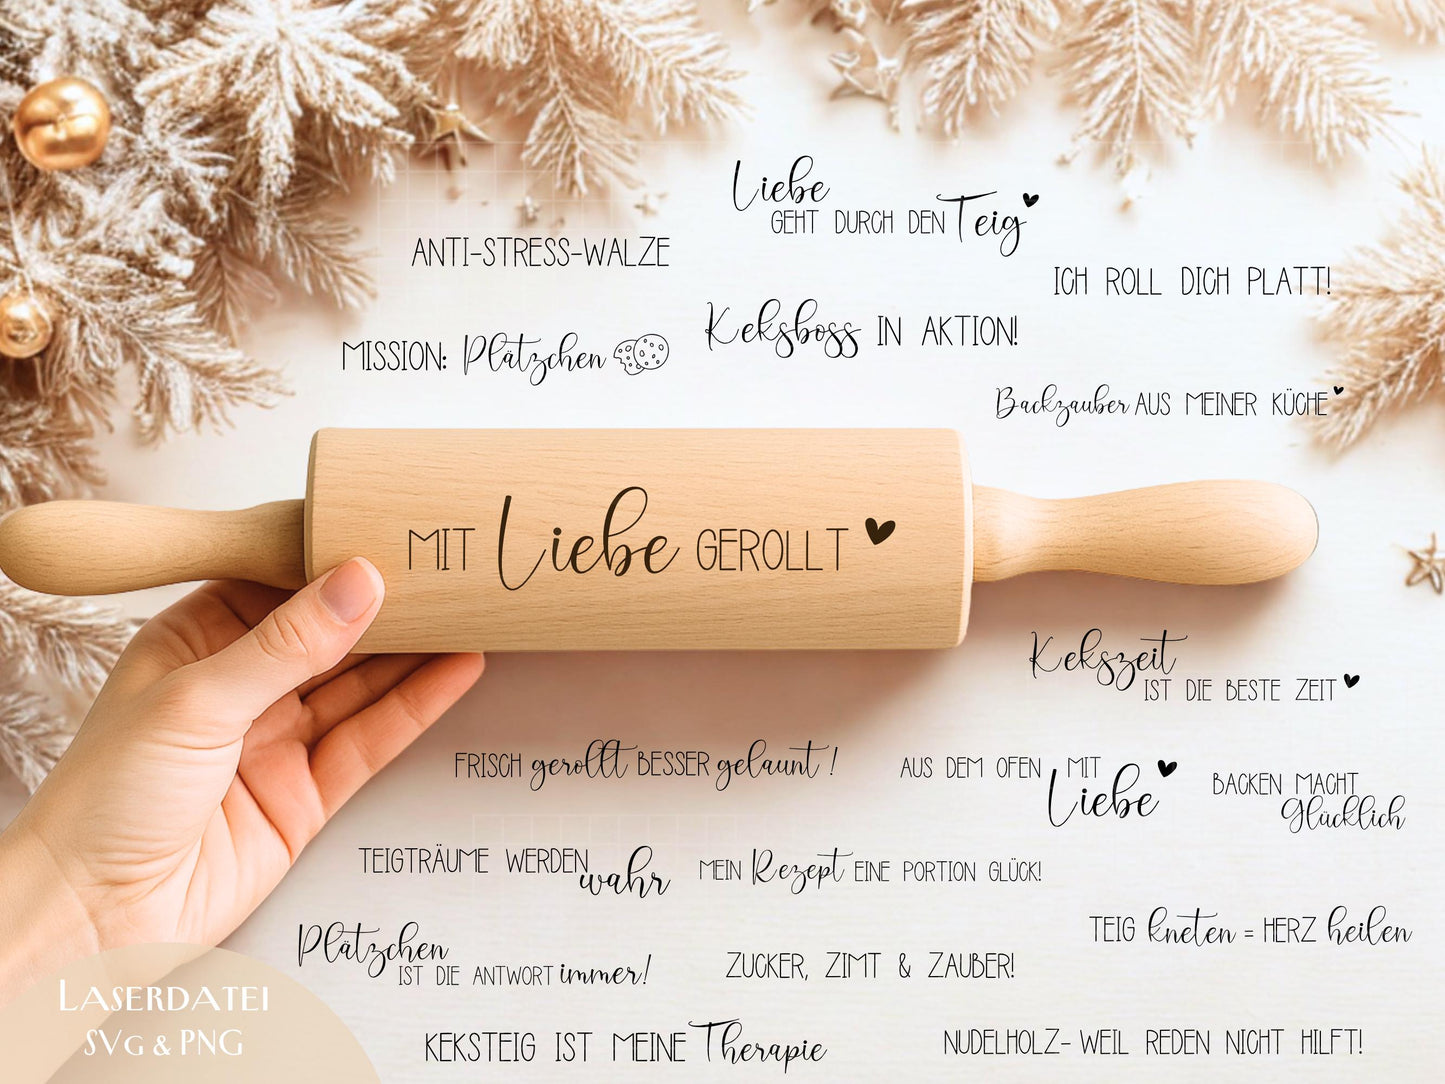 Liebe
GEHT DURCH DEN Teig
ANTI-STRESS-WALZE
ICH ROLL DICH PLATT!
Keksboss IN AKTION!
MISSION: Plätzchen
Backzauber AUS MEINER KÜCHE
MIT Liebe GEROLLT
Kekszeit
IST DIE BESTE ZEIT
FRISCH gerollt BESSER gelaunt!
AUS DEM OFEN MIT
Liebe
BACKEN MACHT
Glücklich
TEIGTRÄUME WERDEN
wahr
MEIN Rezept EINE PORTION GLÜCK!
Plätzchen
IST DIE ANTWORT immer!
ZUCKER, ZIMT & ZAUBER!
TEIG kneten = HERZ heilen
LASERDATEI
SVG & PNG
KEKSTEIG IST MEINE Therapie
NUDELHOLZ- WEIL REDEN NICHT HILFT!